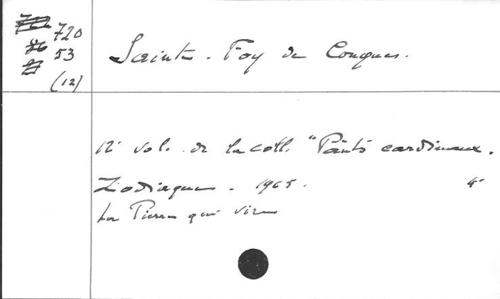 720
53
(12)
Sainte. Foy de Conques.
12e vol. de la coll. "Points cardinaux.
Zodiaque. 1965. 4°
La Pierre qui vire